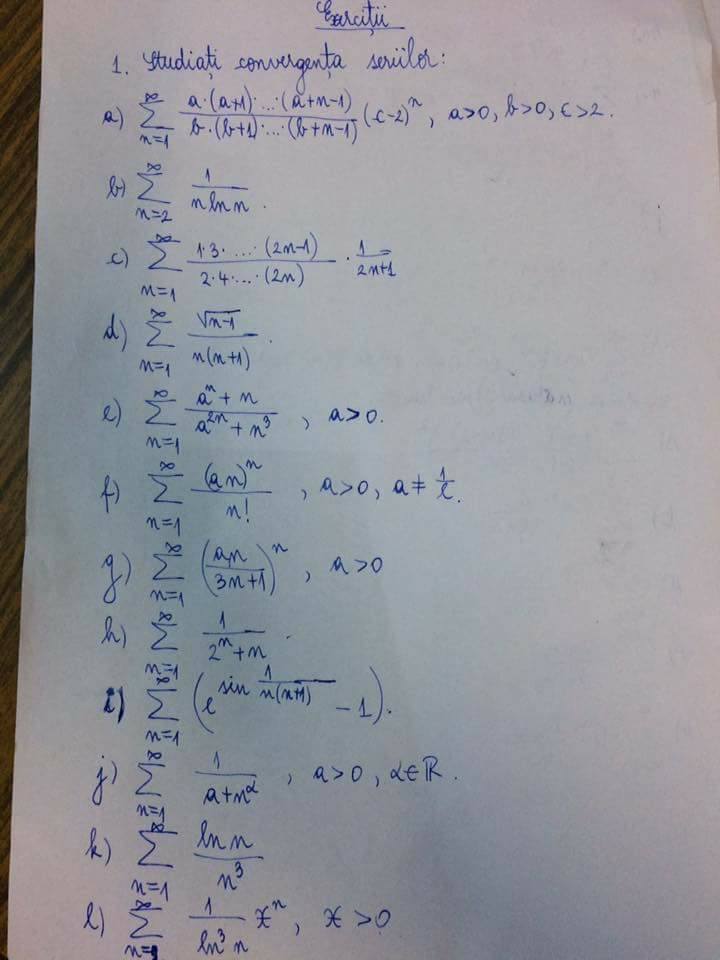 Exerciții
1. Studiați convergența seriilor:
a) ∑_{n=1}^{∞} \frac{a·(a+1)·...·(a+n-1)}{b·(b+1)·...·(b+n-1)} (c-2)^n, a>0, b>0, c>2.
b) ∑_{n=2}^{∞} \frac{1}{n ln n}.
c) ∑_{n=1}^{∞} \frac{1·3·...·(2n-1)}{2·4·...·(2n)} · \frac{1}{2n+1}
d) ∑_{n=1}^{∞} \frac{\sqrt{n-1}}{n(n+1)}.
e) ∑_{n=1}^{∞} \frac{a^n+n}{a^{2n}+n^3}, a>0.
f) ∑_{n=1}^{∞} \frac{(an)^n}{n!}, a>0, a≠\frac{1}{e}.
g) ∑_{n=1}^{∞} (\frac{an}{3n+1})^n, a>0
h) ∑_{n=1}^{∞} \frac{1}{2^n+n}.
i) ∑_{n=1}^{∞} (e^{sin \frac{1}{n(n+1)}} - 1).
j) ∑_{n=1}^{∞} \frac{1}{a+n^α}, a>0, α∈ℝ.
k) ∑_{n=1}^{∞} \frac{ln n}{n^3}
l) ∑^{∞} \frac{1}{ln^3 n} x^n, x>0